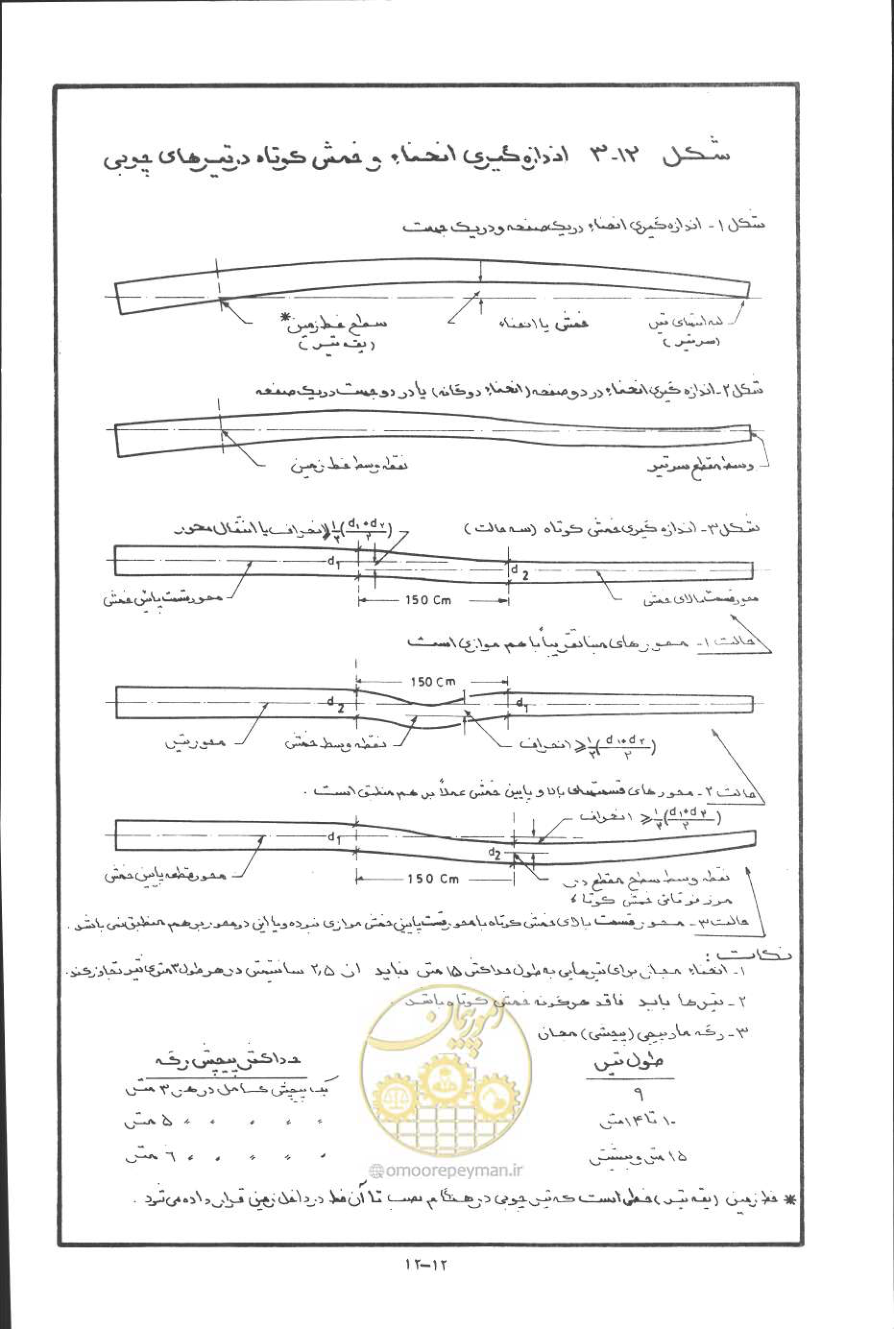 شکل ۱۲-۳ اندازه گیری انحناء و خمش کوتاه در تیرهای چوبی
شکل ۱- اندازه گیری انحناء در یک صفحه و در یک جهت
لبه انتهای تیر
(سر تیر)
خمش یا انحناء
سطح خط زمین*
(یقه تیر)
شکل ۲- اندازه گیری انحناء در دو صفحه (انحناء دوگانه) یا در دو جهت در یک صفحه
وسط مقطع سر تیر
نقطه وسط خط زمین
شکل ۳- اندازه گیری خمش کوتاه (سه حالت)
انحراف یا انتقال محور
(d۱+d۲/۲) ۱/۳
d1
d2
150 Cm
محور قسمت بالای خمش
محور قسمت پایین خمش
حالت ۱- محورهای مبنا تقریباً با هم موازی است
150 Cm
d2
d1
محور تیر
نقطه وسط خمش
انحراف ≥ ۱/۳ (d۱+d۲/۲)
حالت ۲- محورهای قسمتهای بالا و پایین خمش عملاً بر هم منطبق است .
انحراف ≥ ۱/۳ (d۱+d۲/۲)
d1
d2
150 Cm
محور قطعه پایین خمش
نقطه وسط سطح مقطع در
مرز فوقانی خمش کوتاه
حالت ۳- محور قسمت بالای خمش کوتاه با محور قسمت پایین خمش موازی نبوده و یا این دو محور بر هم منطبق نمی باشد .
نکات :
۱- انحناء مجاز برای تیرهایی به طول حداکثر ۱۵ متر نباید از ۲٫۵ سانتیمتر در هر طول ۳ متری تیر تجاوز کند.
۲- تیرها باید فاقد هرگونه خمش کوتاه باشد .
۳- رگه مارپیچی (پیچشی) مجاز
طول تیر
حداکثر پیچش رگه
۹
یک پیچش کامل در هر ۳ متر
۱۰ تا ۱۴ متر
〃 〃 〃 〃 〃 ۵ متر
۱۵ متر و بیشتر
〃 〃 〃 〃 〃 ۶ متر
* خط زمین (یقه تیر) خطی است که تیر چوبی در هنگام نصب تا آن خط در داخل زمین قرار داده می شود .
امور پیمان
@omoorepeyman.ir
۱۲-۱۲